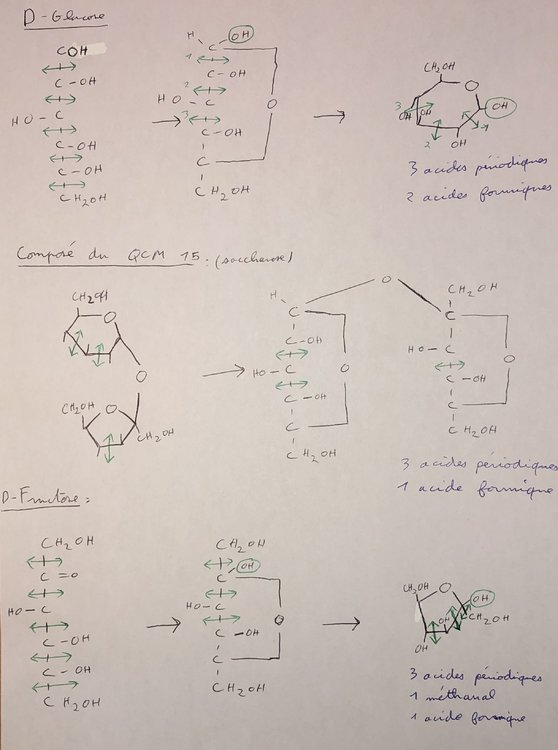 D-Glucose
COH
C-OH
HO-C
C-OH
C-OH
CH2OH
H
OH
C
1
C-OH
2
HO-C
O
3
C-OH
C
CH2OH
CH2OH
O
3
OH
OH
OH
1
2
OH
3 acides périodiques
2 acides formiques
Composé du QCM 15: (saccharose)
CH2OH
O
O
CH2OH
O
CH2OH
O
H
C
C-OH
HO-C
O
C-OH
C
CH2OH
CH2OH
C
HO-C
O
C-OH
C
CH2OH
3 acides périodiques
1 acide formique
D-Fructose:
CH2OH
C=O
HO-C
C-OH
C-OH
CH2OH
CH2OH
OH
C
HO-C
O
C-OH
C
CH2OH
CH2OH
O
OH
OH
CH2OH
OH
3 acides périodiques
1 méthanal
1 acide formique